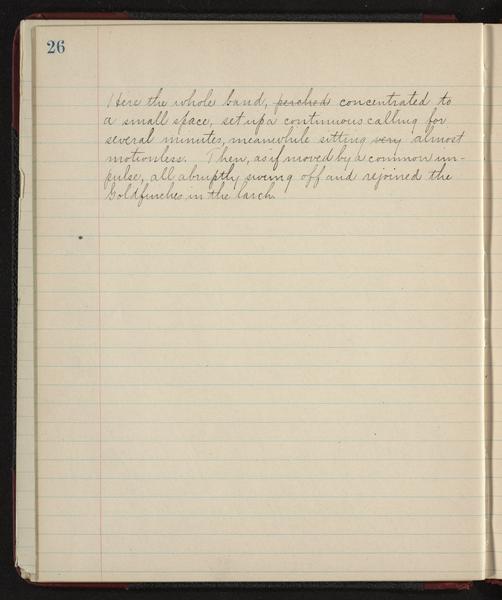 26
Here the whole band, perched concentrated to
a small space, set up a continuous calling for
several minutes, meanwhile sitting very almost
motionless. Then, as if moved by a common im-
pulse, all abruptly swung off and rejoined the
Goldfinches in the larch.